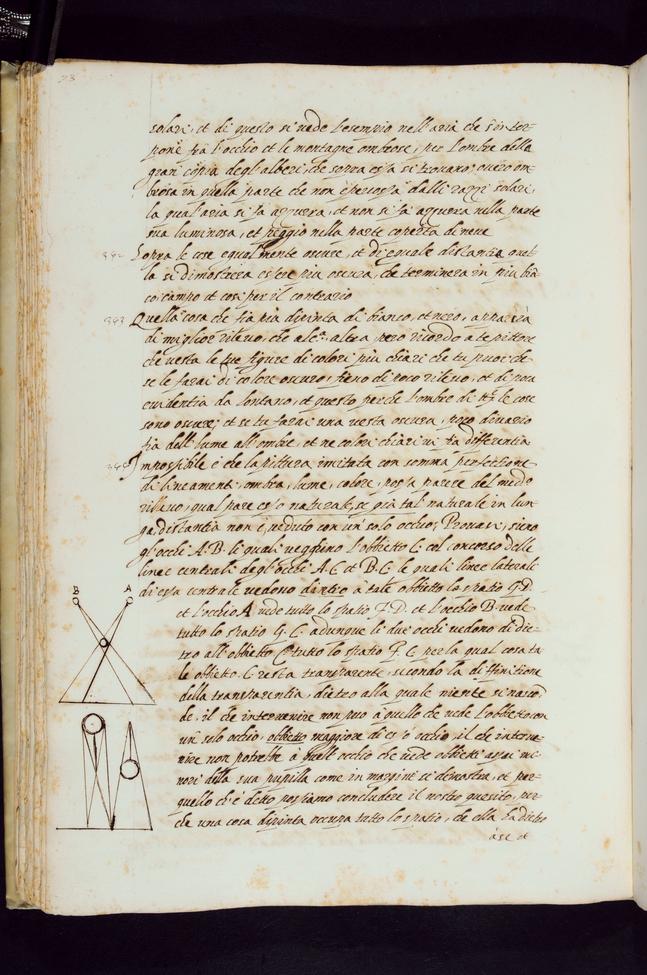 23
solari, et di questo si vede l'esempio nell'aria che s'inter-
pone fra l'occhio et le montagne ombrose, per l'ombre della
gran copia degl'alberi, che sopra essa si trovano, overo om-
brosa in quella parte che non è percossa dalli razzi solari,
la qual'aria si fa azzurra, et non si fa azzurra nella parte
sua luminosa, et peggio nella parte coperta di neve
Sopra le cose egualmente oscure, et di eguale distantia quel-
la si dimostrera essere piu oscura, che terminera in piu bia
co campo et cosi per il contrario
Quella cosa che fia più dipinta di bianco, et nero, apparirà
di miglior rilevo, che alc.ª altra pero ricordo a te pittore
che vesta le tue figure di colori più chiari che tu puoi che
se le farai di colore oscuro, fieno di poco rilevo, et di poca
evidentia da lontano, et questo perche l'ombre di tt.e le cose
sono oscure; et se tu farai una vesta oscura, poco divario
fia dell'lume all'ombre, et ne colori chiari vi fia differentia
Impossibile è che la pittura imitata con somma perfettione
di lineamenti, ombra, lume, colore, possa parere del medo
rilievo, qual pare esso naturale, se già tal naturale in lun-
ga distantia non è veduto con un solo occhio; Provasi, sieno
gl'occhi A. B. li quali veggino l'obbietto C. col concorso delle
linee centrali degl'occhi A. C et B. C. le quali linee laterali
di essa centrale vedono dietro à tale obbietto lo spatio G. D.
et l'occhio A vede tutto lo spatio F. D. et l'occhio B. vede
tutto lo spatio G. E. adunque li due occhi vedono di die-
tro all'obbietto C tutto lo spatio F. E per la qual cosa ta
le obbietto C resta transparente, secondo la diffinitione
della transparentia, dietro alla quale niente si nascō
de, il che intervenire non puo à quello che vede l'obbietto con
un solo occhio, obbietto maggiore di esso occhio, il che interve
nire non potrebbe à quell'occhio che vede obbietti assai mi-
nori della sua pupilla come in margine si dimostra, et per
quello ch'è detto possiamo concludere il nostro quesito, per
che una cosa dipinta occupa tutto lo spatio, che ella ha dietro
à se et
B A